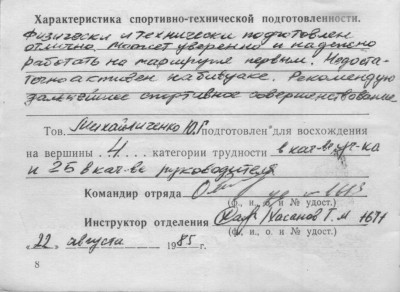 Характеристика спортивно-технической подготовленности.
Физически и технически подготовлен
отлично. Может уверенно и надежно
работать на маршруте первым. Недоста-
точно активен на бивуаке. Рекомендую
дальнейшее спортивное совершенствование
Тов. Михайличенко Ю.Г подготовлен для восхождения
на вершины 4 категории трудности в кач-ве уч-ка
и 2Б в кач-ве руководителя
Командир отряда
(ф., и., о. и № удост.)
Инструктор отделения Хасанов Т. М
(ф., и., о. и № удост.)
„22" августа 1985г.
8